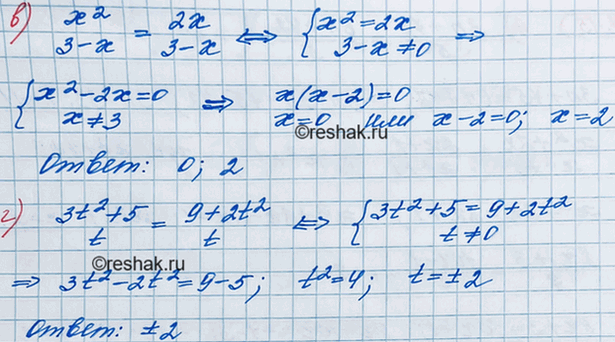 в) x²/(3-x) = 2x/(3-x) ⇔ { x²=2x ; 3-x≠0 ⇒
{ x²-2x=0 ; x≠3 ⇒ x(x-2)=0
x=0 или x-2=0; x=2
©reshak.ru
Ответ: 0; 2
г) (3t²+5)/t = (9+2t²)/t ⇔ { 3t²+5=9+2t² ; t≠0
©reshak.ru
⇒ 3t²-2t²=9-5; t²=4; t=±2
Ответ: ±2